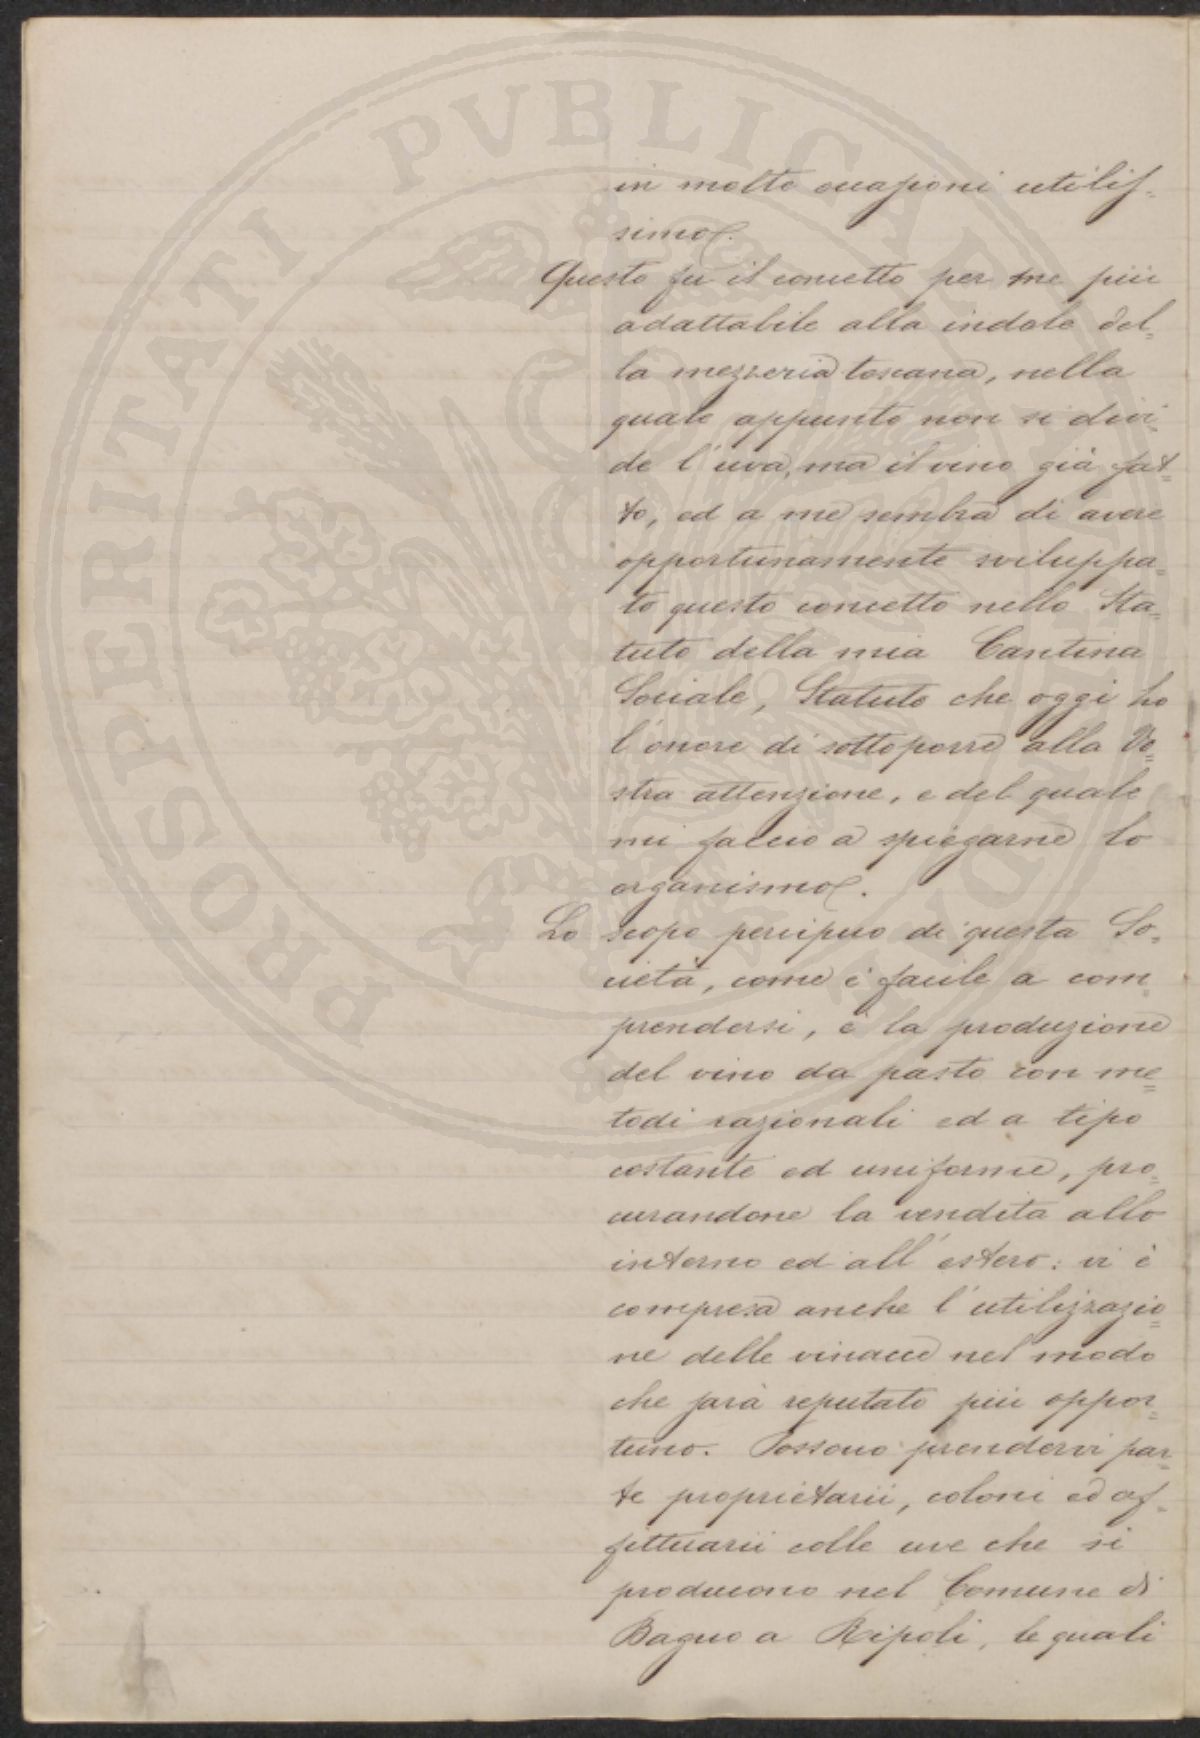 in molte occasioni utilis-
simo.
Questo fu il concetto per me più
adattabile alla indole del-
la mezzeria toscana, nella
quale appunto non si divi-
de l'uva, ma il vino già fat-
to, ed a me sembra di avere
opportunamente sviluppa-
to questo concetto nello Sta-
tuto della mia Cantina
Sociale, Statuto che oggi ho
l'onore di sottoporre alla Vo-
stra attenzione, e del quale
mi faccio a spiegarne lo
organismo.
Lo scopo percipuo di questa So-
cietà, come è facile a com-
prendersi, è la produzione
del vino da pasto con me-
todi razionali ed a tipo
costante ed uniforme, pro-
curandone la vendita allo
interno ed all'estero: vi è
compresa anche l'utilizzazio-
ne delle vinacce nel modo
che sarà reputato più oppor-
tuno. Possono prendervi par-
te proprietarii, coloni ed af-
fittuarii colle uve che si
producono nel Comune di
Bagno a Ripoli, le quali
PROSPERITATI PVBLICAE AVGENDAE